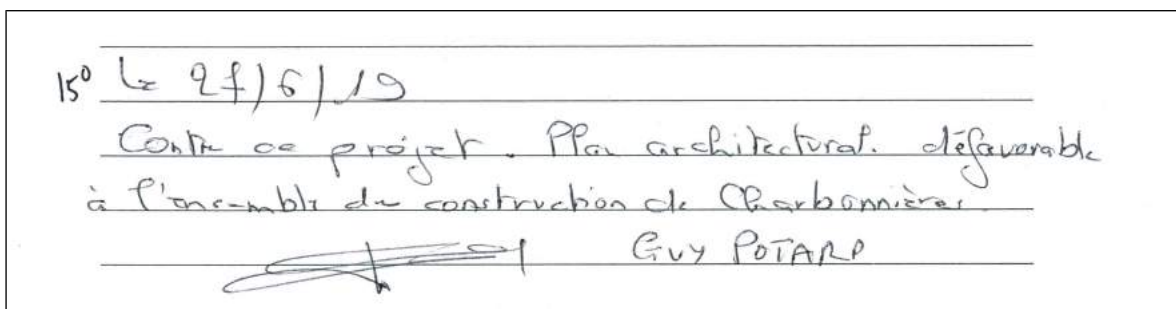 15° Le 27/6/19
Contre ce projet. Plan architectural. défavorable
à l'ensemble de construction de Charbonnières.
GUY POTARD